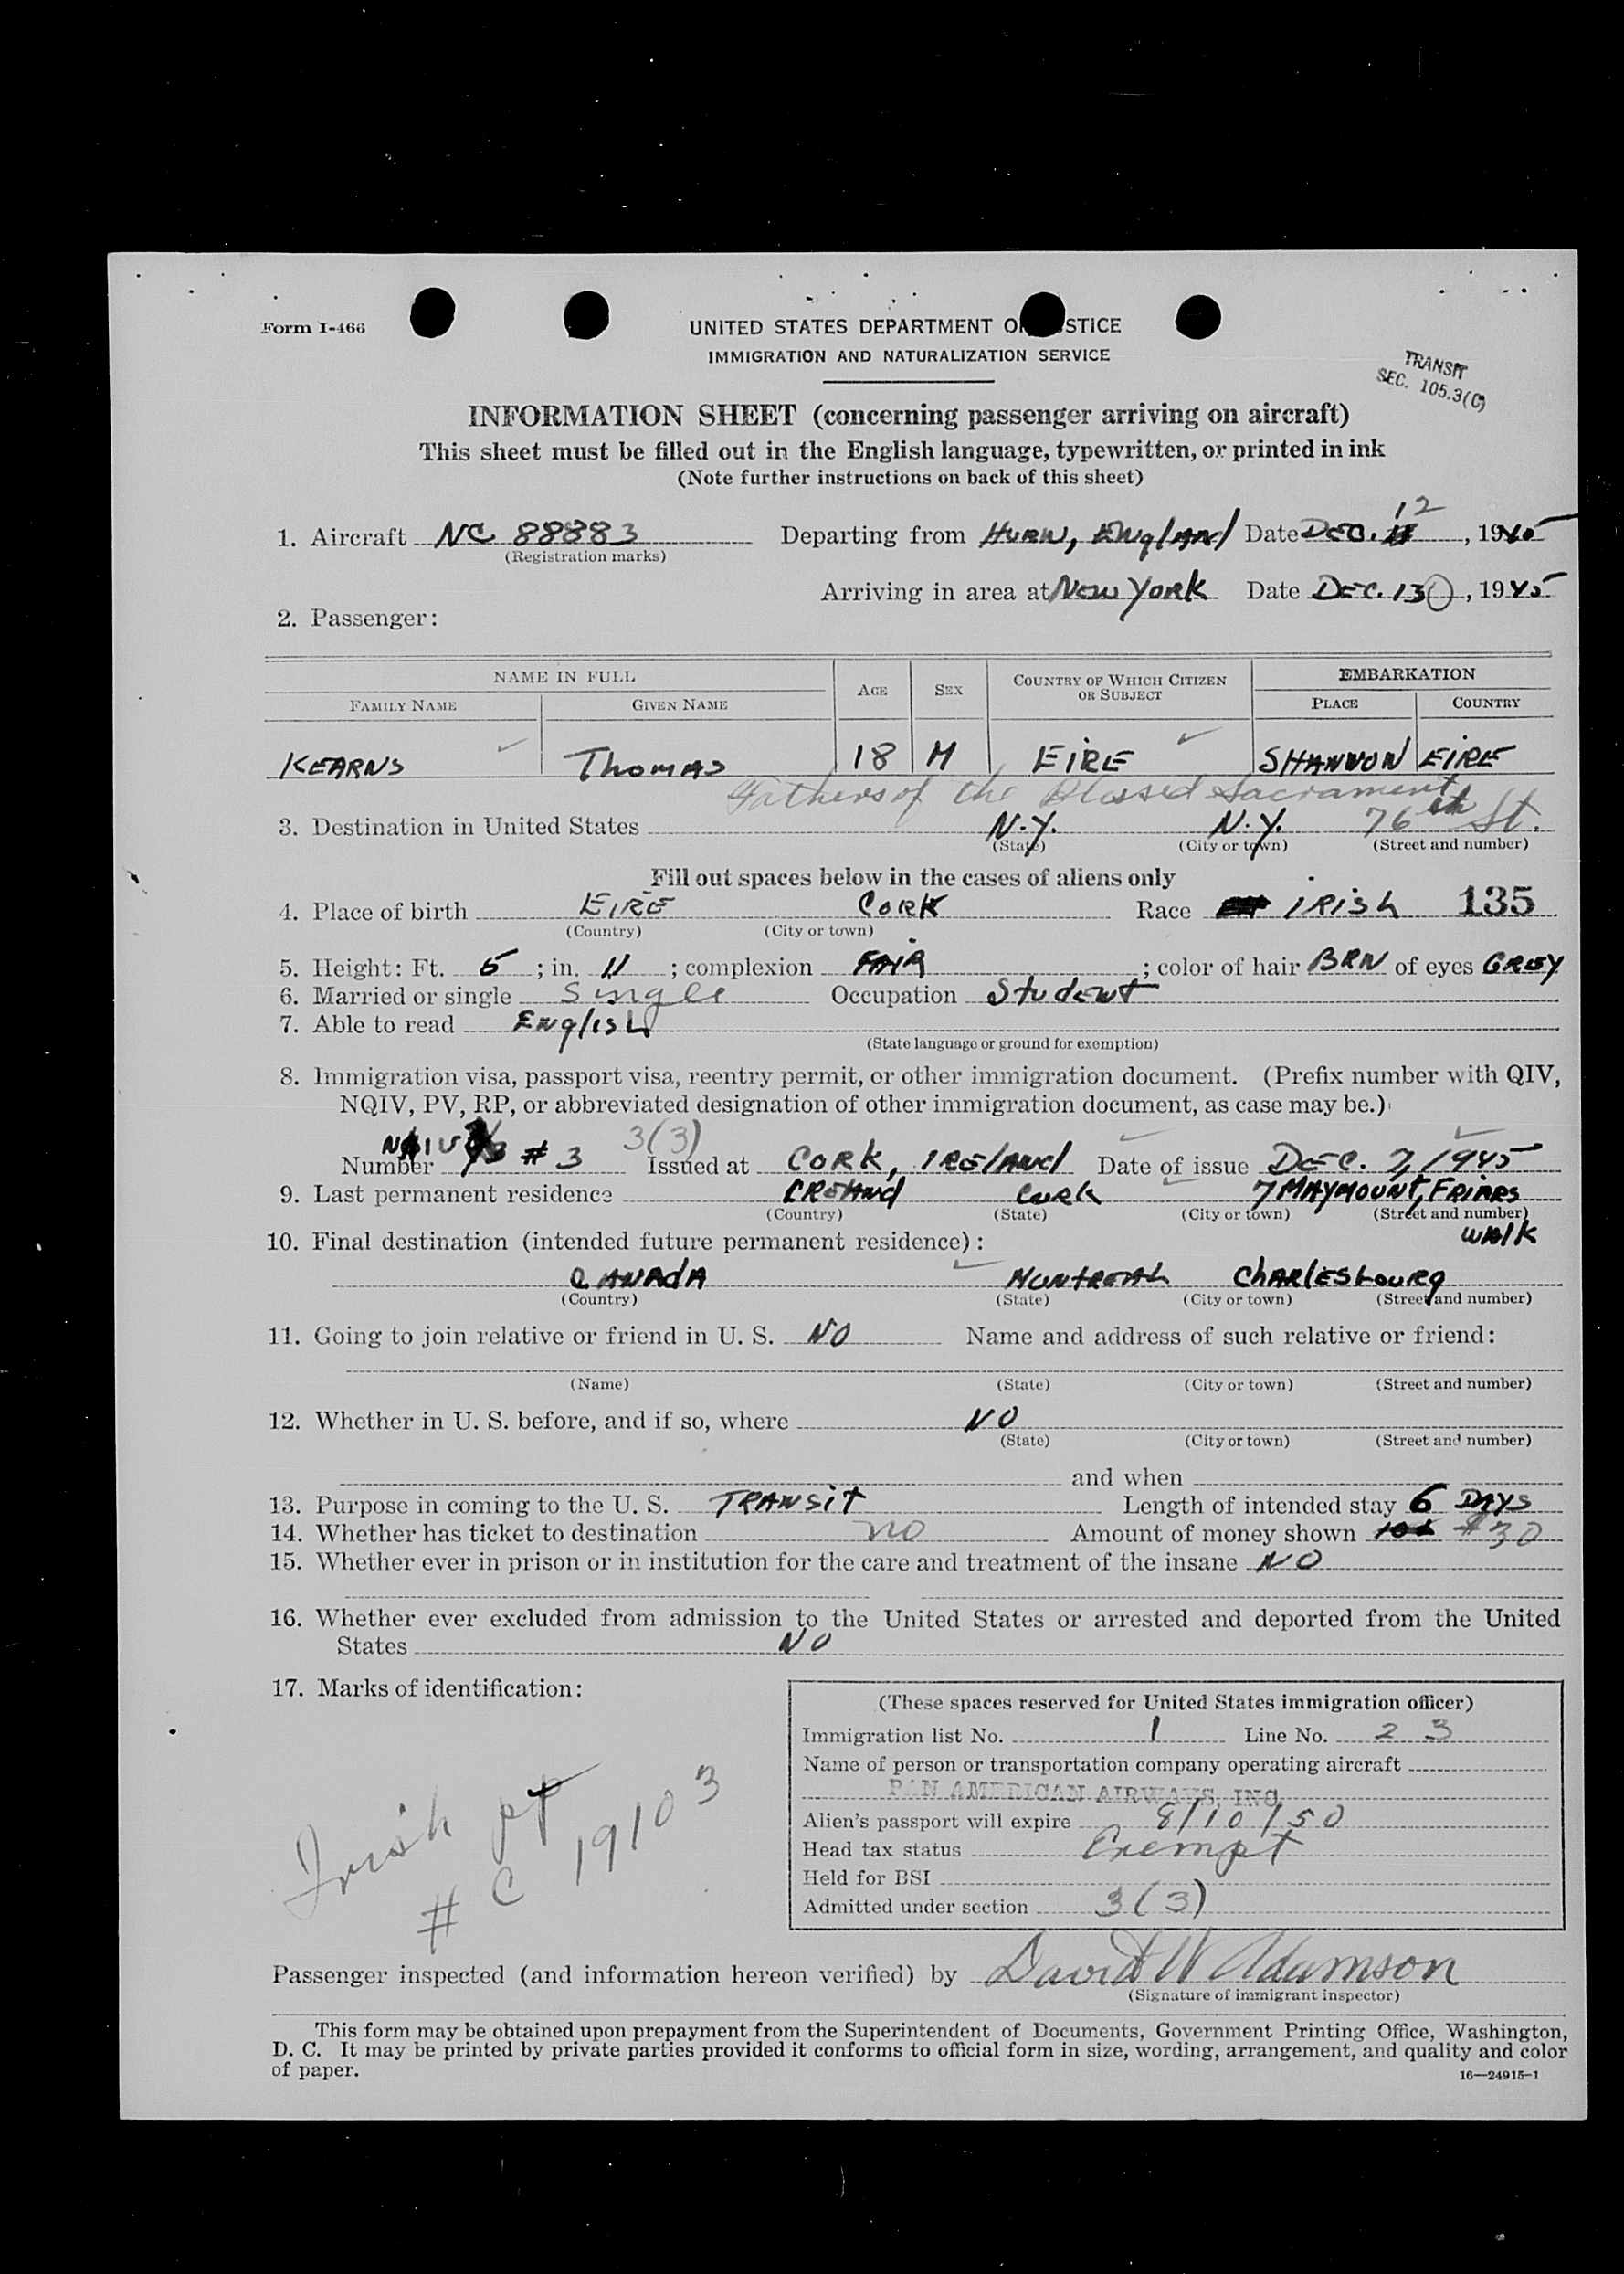 Form I-466
UNITED STATES DEPARTMENT OF STICE
IMMIGRATION AND NATURALIZATION SERVICE
TRANSIT
SEC. 105.3(C)
INFORMATION SHEET (concerning passenger arriving on aircraft)
This sheet must be filled out in the English language, typewritten, or printed in ink
(Note further instructions on back of this sheet)
12
1. Aircraft NC 88883 Departing from HURN, ENglANd Date DEC. , 1945
(Registration marks)
Arriving in area at New York Date DEC. 13 , 1945
2. Passenger:
NAME IN FULL AGE SEX COUNTRY OF WHICH CITIZEN OR SUBJECT EMBARKATION
FAMILY NAME GIVEN NAME PLACE COUNTRY
KEARNS THOMAS 18 M EIRE SHANNON EIRE
Fathers of the Blessed Sacrament
3. Destination in United States N.Y. N.Y. 76th St.
(State) (City or town) (Street and number)
Fill out spaces below in the cases of aliens only
4. Place of birth EIRE CORK Race IRISH 135
(Country) (City or town)
5. Height: Ft. 5 ; in. 11 ; complexion FAIR ; color of hair BRN of eyes GREY
6. Married or single Single Occupation Student
7. Able to read English
(State language or ground for exemption)
8. Immigration visa, passport visa, reentry permit, or other immigration document. (Prefix number with QIV,
NQIV, PV, RP, or abbreviated designation of other immigration document, as case may be.)
3(3)
Number # 3 Issued at CORK, IRElANd Date of issue DEC. 7, 1945
9. Last permanent residence IRElANd Cork 7 MAYMOUNT, FRIARS
(Country) (State) (City or town) (Street and number)
WAlK
10. Final destination (intended future permanent residence):
CANAdA MONTREAL CHARlESbourg
(Country) (State) (City or town) (Street and number)
11. Going to join relative or friend in U. S. NO Name and address of such relative or friend:
(Name) (State) (City or town) (Street and number)
12. Whether in U. S. before, and if so, where NO
(State) (City or town) (Street and number)
and when
13. Purpose in coming to the U. S. TRANSIT Length of intended stay 6 DAYS
14. Whether has ticket to destination NO Amount of money shown $30
15. Whether ever in prison or in institution for the care and treatment of the insane NO
16. Whether ever excluded from admission to the United States or arrested and deported from the United
States NO
17. Marks of identification:
Irish pp
# C 19103
(These spaces reserved for United States immigration officer)
Immigration list No. 1 Line No. 23
Name of person or transportation company operating aircraft
PAN AMERICAN AIRWAYS, INC.
Alien's passport will expire 8/10/50
Head tax status Exempt
Held for BSI
Admitted under section 3(3)
Passenger inspected (and information hereon verified) by David W Adamson
(Signature of immigrant inspector)
This form may be obtained upon prepayment from the Superintendent of Documents, Government Printing Office, Washington,
D. C. It may be printed by private parties provided it conforms to official form in size, wording, arrangement, and quality and color
of paper.
16—24915-1